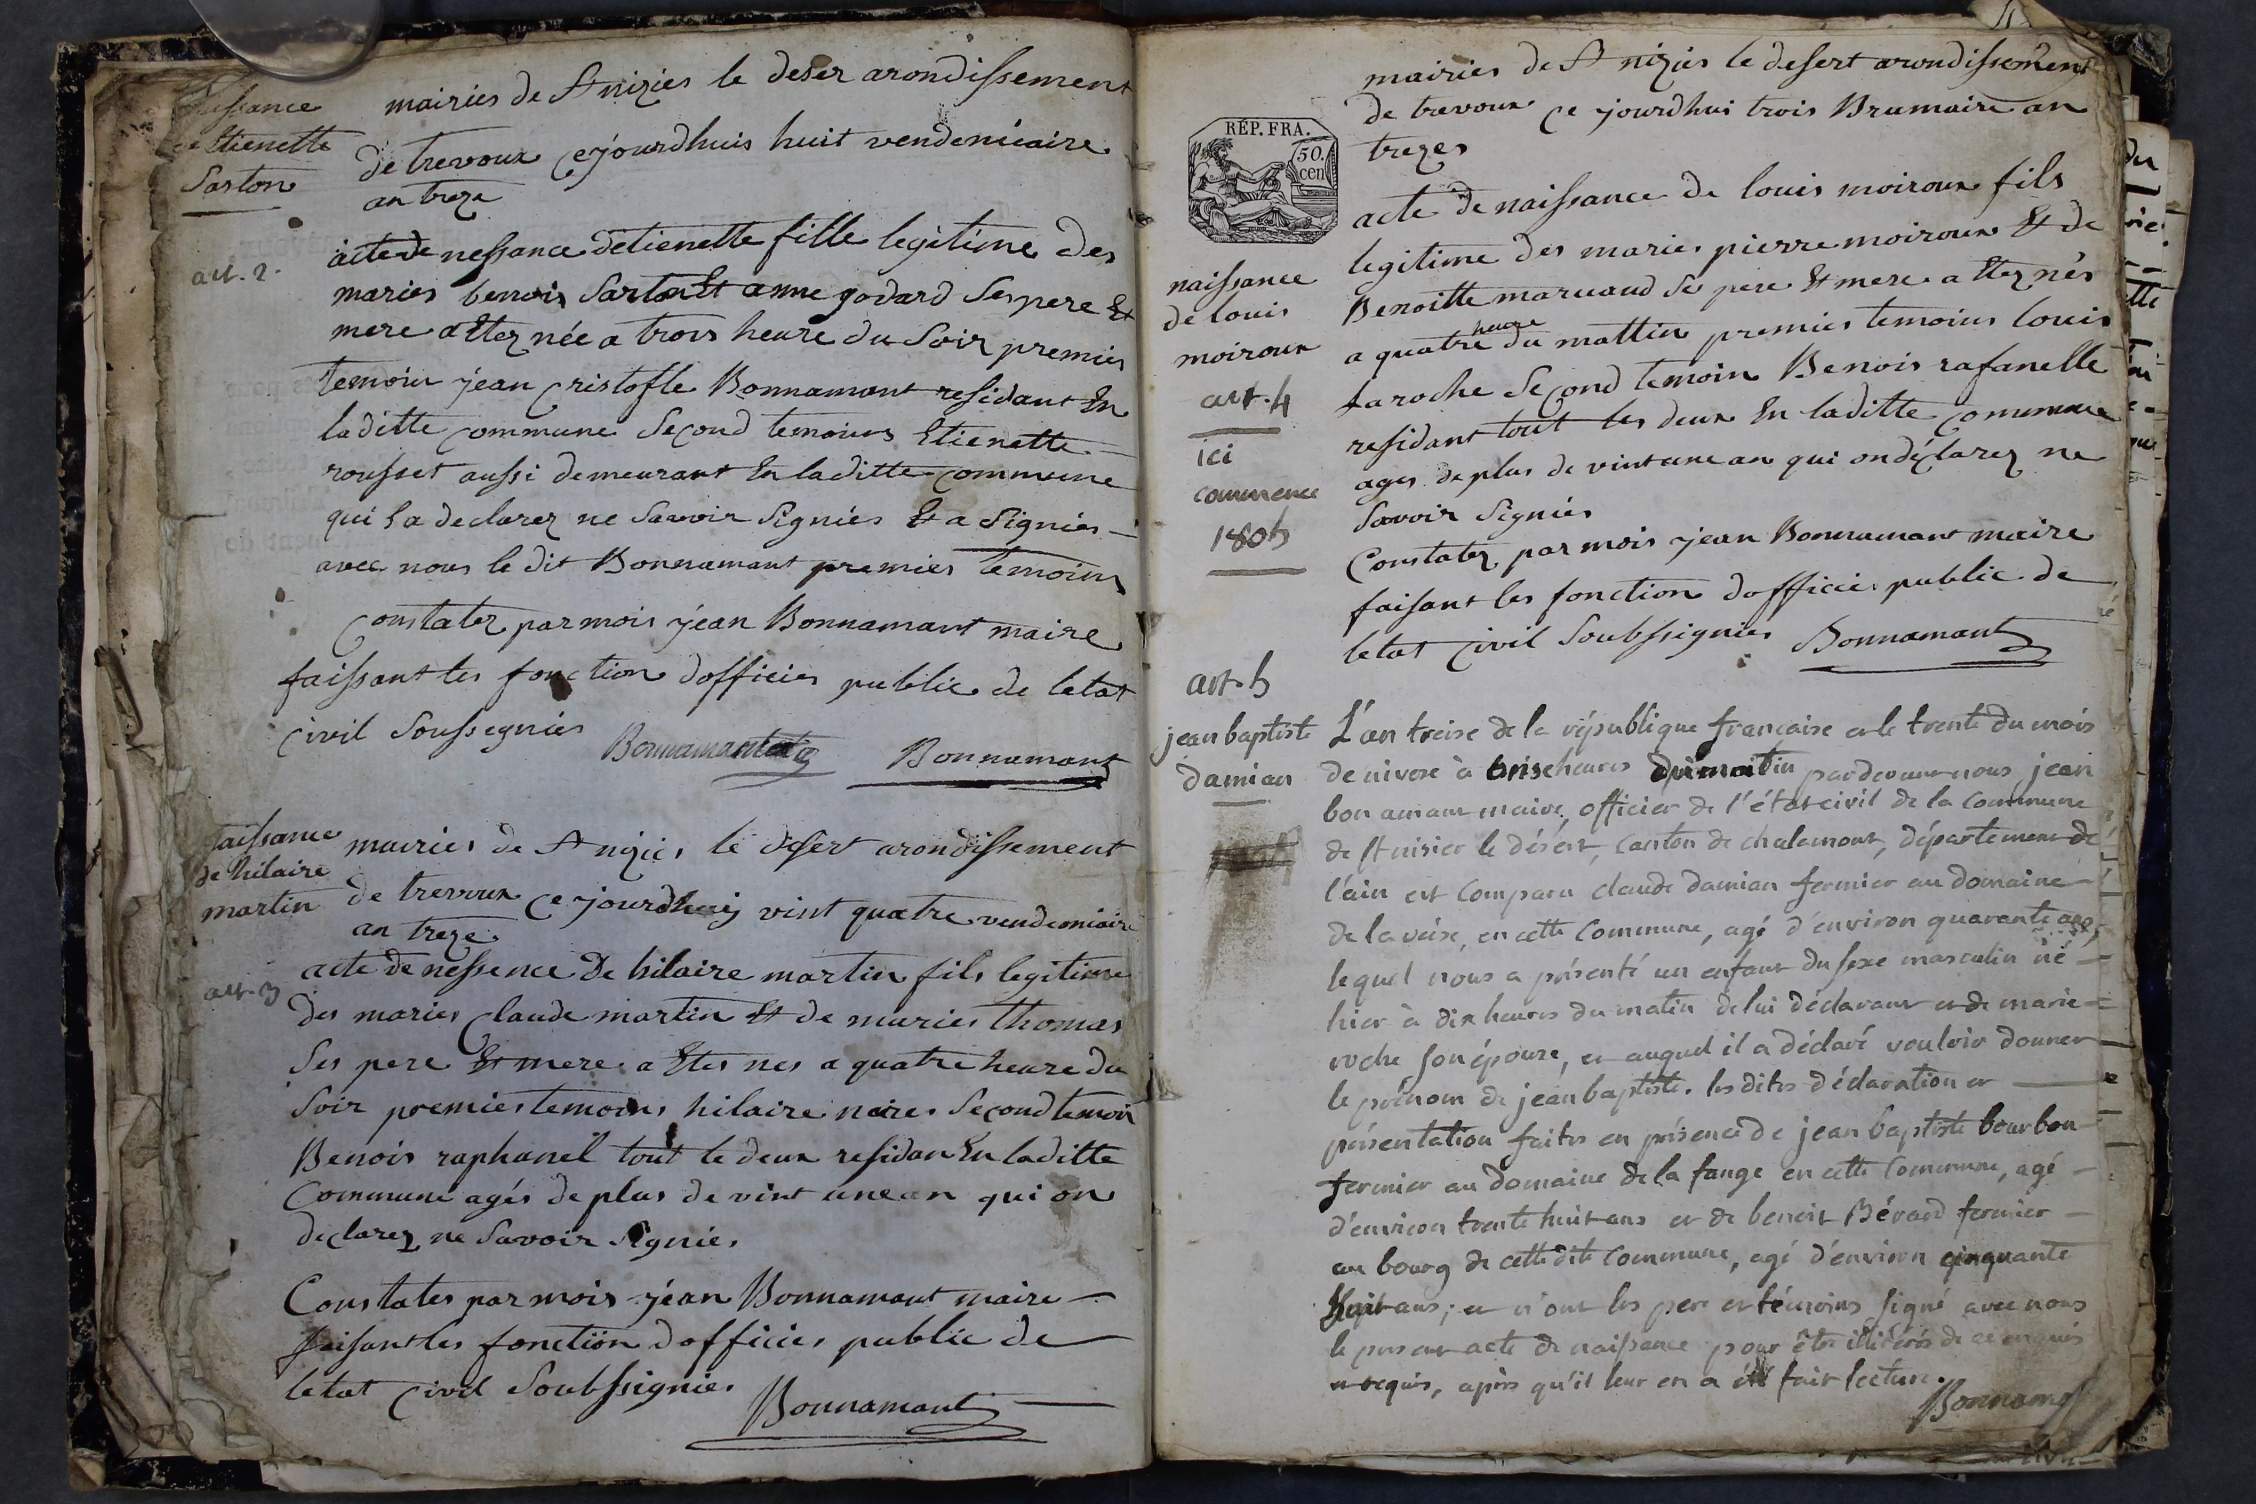 naissance
detienette
Sarton
art. 2.
mairies de St nizies le deser arondissement
de trevoux cejourdhuis huit vendemieaire
an treze
acte de nessance detienette fille legitime des
maries benois Sarton Et anne godard Ses pere Et
mere a Etez née a trois heure du Soir premier
temoin jean cristofle Bonnamant residant En
laditte commune Second temoins Etienette
rousset aussi demeurant En laditte commune
qui a declarez ne Savoir Signiés Et a Signiés
avec nous le dit Bonnamant premies temoins
Constatez par mois jean Bonnamant maire
faissant les fonction dofficies public de letat
Civil Soussegniés
Bonnamant
Bonnamant
naissance
de hilaire
martin
art. 3
mairies de St nizies le desert arondissement
de trevoux ce jourdhuy vint quatre vendemiaire
an treze
acte de nessence De hilaire martin fils legitime
des maries Claude martin Et de maries thomas
Ses pere Et mere a Etes nes a quatre heure du
Soir premies temoins hilaire naires Second temoin
Benois raphanel tout le deux residan En laditte
Commune agés de plus de vint une an qui on
declarez ne Savoir Signies
Constates par mois jean Bonnamant maire
faisant les fonction dofficies public de
letat Civil Soubssignies
Bonnamant
RÉP. FRA.
50.
cen
naissance
de louis
moiroux
art. 4
ici
commence
1805
mairies de St nizies le desert arondissement
de trevoux ce jourdhui trois Brumaire an
trezes
acte de naissance de louis moiroux fils
legitime des maries pierre moiroux Et de
Benoitte maruaud Se pere Et mere a Etez nés
a quatre heure du mattin premies temoins louis
Laroche Second temoin Benois rafanelle
residant tout les deux En laditte commune
ages de plus de vint une an qui on déclarez ne
Savoir Signiés
Constatez par mois jean Bonnamant maire
faisant les fonction dofficies public de
letat Civil Soubssignies Bonnamant
art. 5
jean baptiste
damian
L'an treise de la république française et le trente du mois
de nivose à onse heures du matin pardevant nous jean
bon amant maire, officier de l'état civil de la commune
de St nisier le désert, canton de chalamont, département de
l'ain est comparu claude damian fermier au domaine
de la veise, en cette commune, agé d'environ quarante ans,
lequel nous a présenté un enfant du sexe masculin né
hier à dix heures du matin de lui déclarant et de marie
roche son épouse, et auquel il a déclaré vouloir donner
le prénom de jean baptiste. les dites déclaration et
présentation faites en présence de jean baptiste bourbon
fermier au domaine de la fange en cette commune, agé
d'environ trente huit ans et de benoit Bérard fermier
au bourg de cette dite commune, agé d'environ cinquante
huit ans; et n'ont les pere et témoins signé avec nous
le present acte de naissance pour être illitérés de ce enquis
et requis, après qu'il leur en a été fait lecture.
Bonnamant